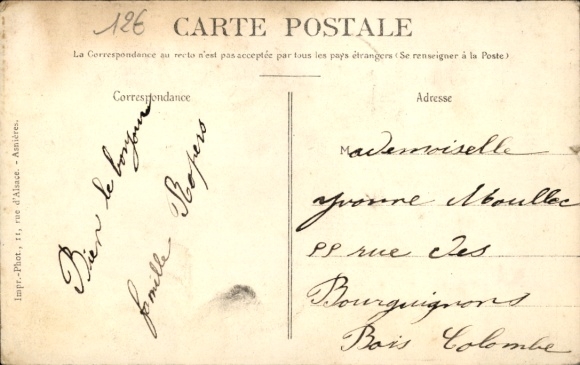 126
CARTE POSTALE
La Correspondance au recto n'est pas acceptée par tous les pays étrangers (Se renseigner à la Poste)
Correspondance
Adresse
Impr.-Phot., 11, rue d'Alsace. - Asnières.
Bien le bonjour
famille Ropers
Mademoiselle
Yvonne Moullec
rue des
Bourguignons
Bois Colombe